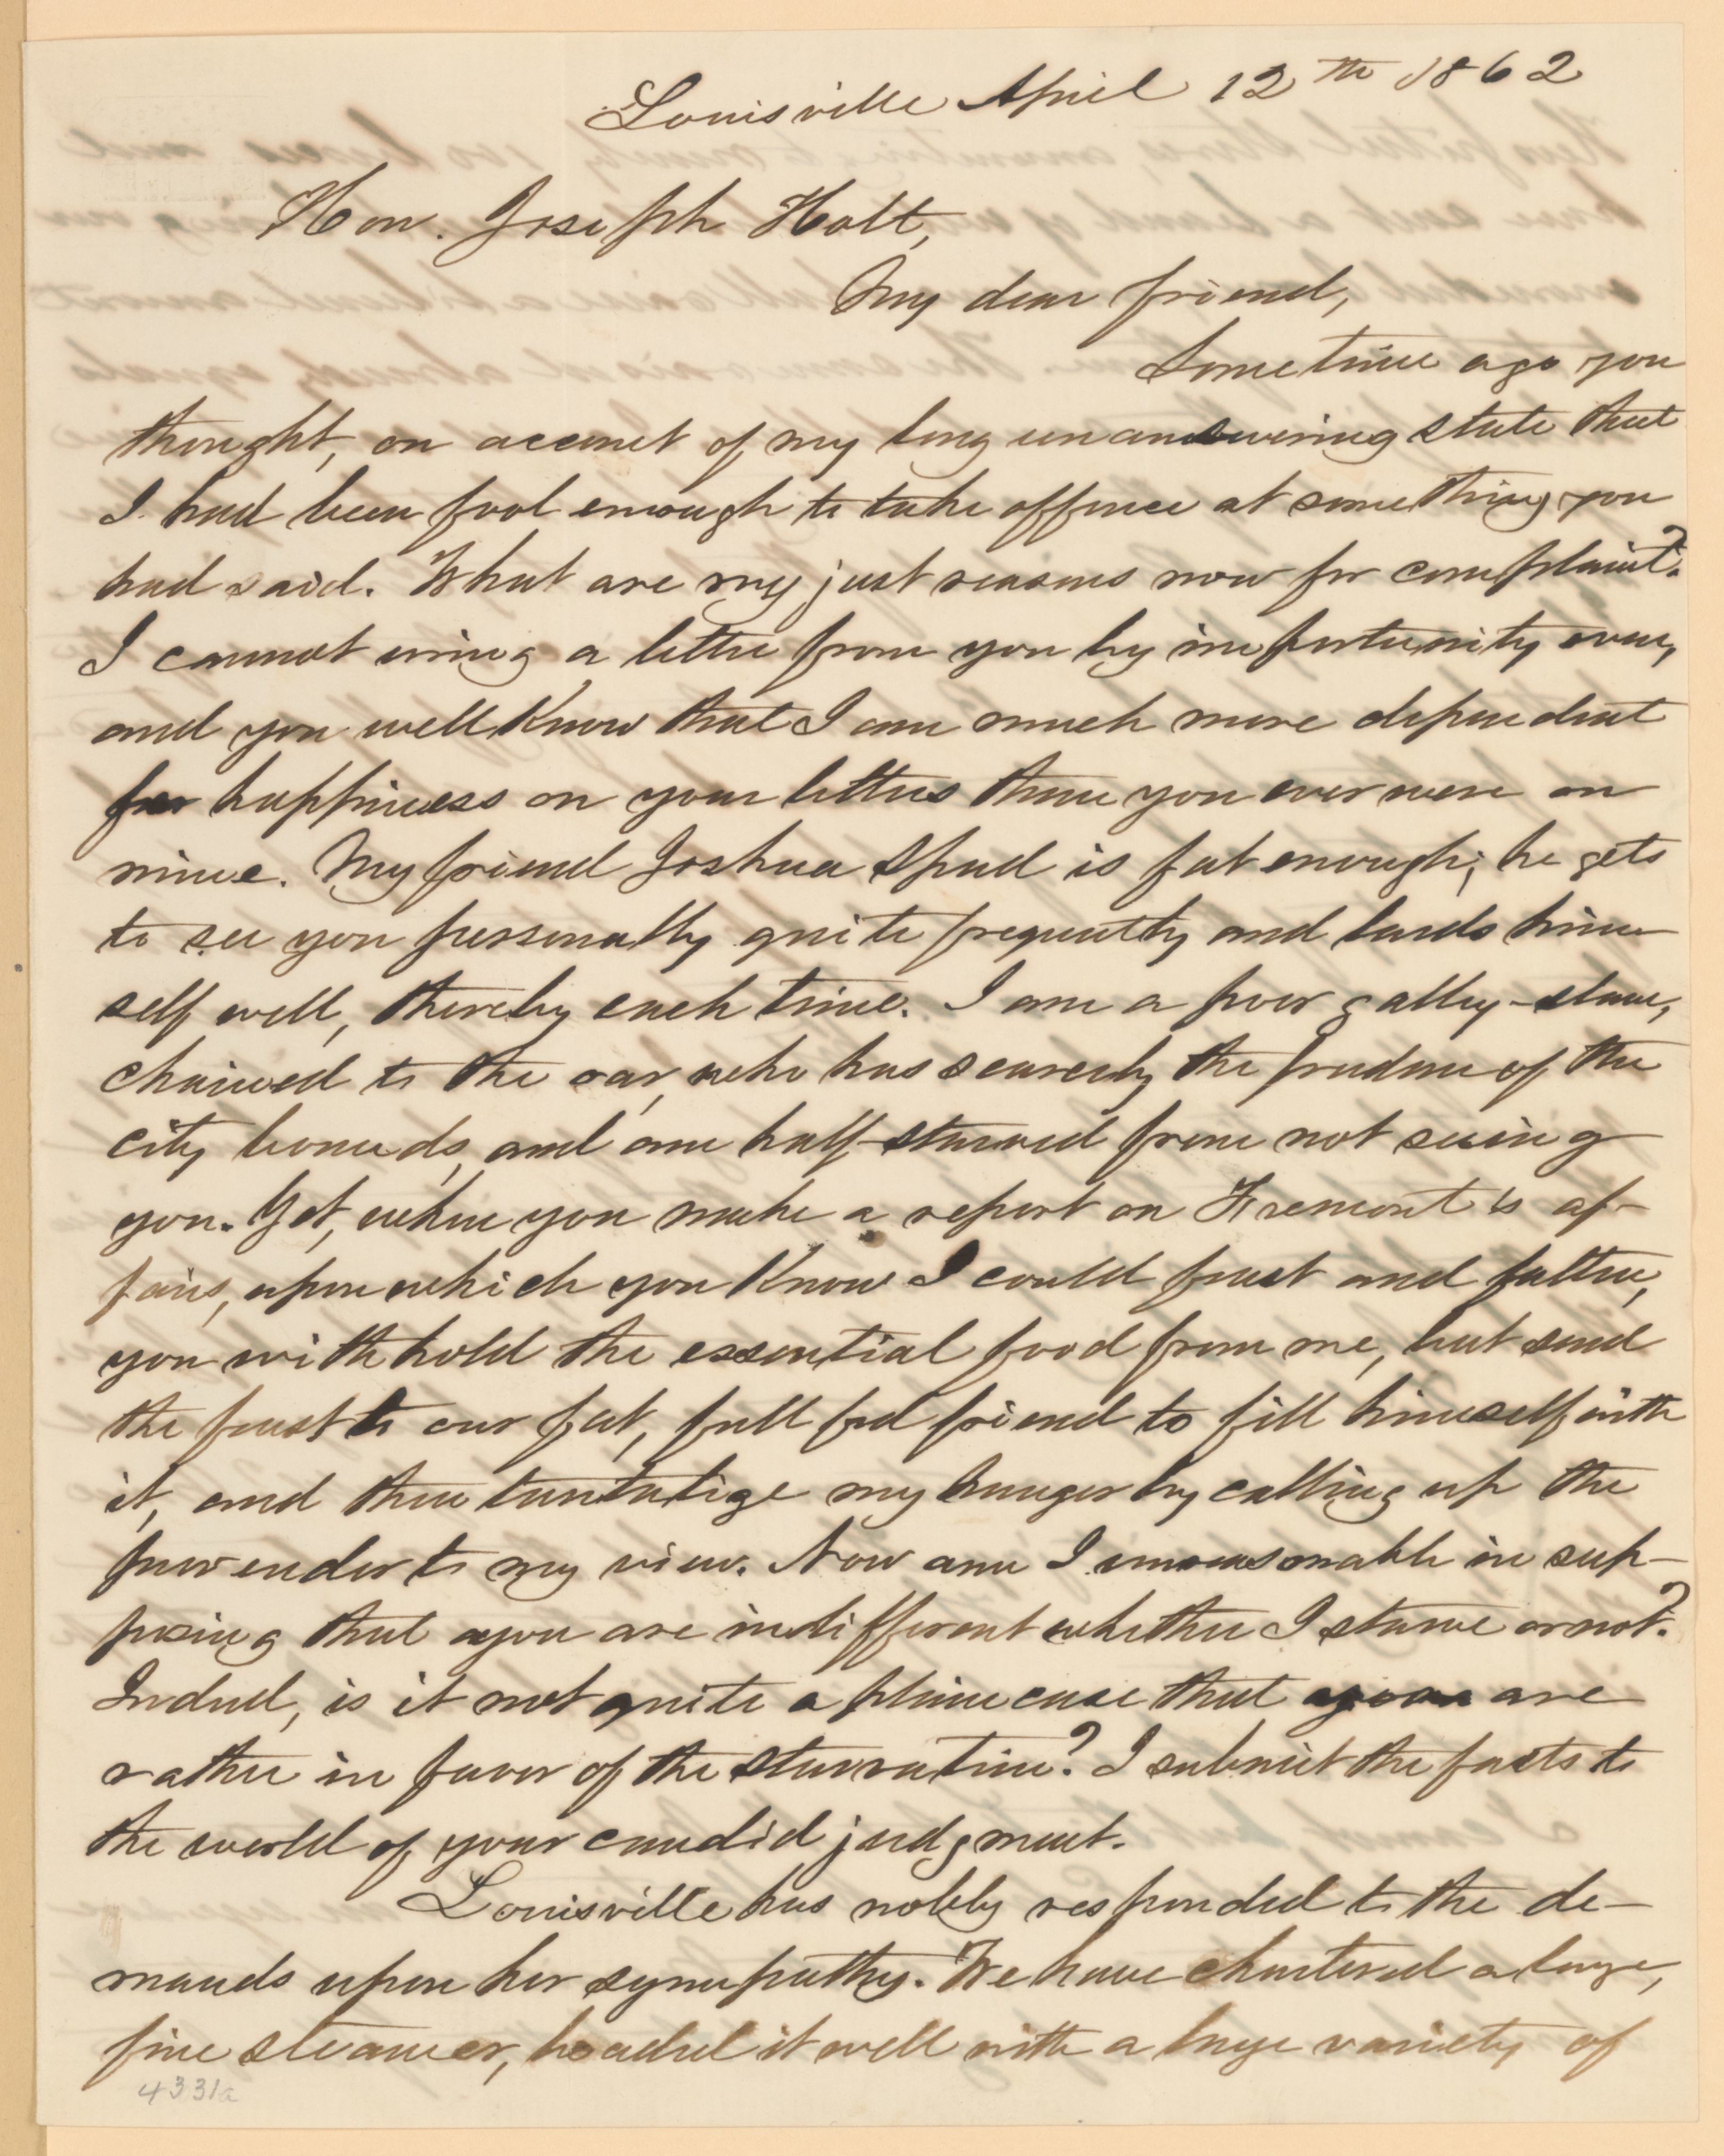 Louisville April 12th 1862
Hon. Joseph Holt,
My dear friend,
Sometime ago you
thought, on account of my long unanswering state that
I had been fool enough to take offence at something you
had said. What are my just reasons now for complaint?
I cannot wring a letter from you by importunity even,
and you well know that I am much more dependent
for happiness on your letters than you ever were on
mine. My friend Joshua Speed is fat enough; he gets
to see you personally quite frequently and lards him
self well, thereby each time. I am a poor galley-slave,
chained to the oar, who has scarcely the freedom of the
city bounds, and am half-starved from not seeing
you. Yet, when you make a report on Fremont's af-
fairs, upon which you know I could feast and fatten,
you withhold the essential food from me, but send
the feast to our fat, full fed friend to fill himself with
it, and then tantalize my hunger by calling up the
provender to my view. Now am I unreasonable in sup-
posing that you are indifferent whether I starve or not?
Indeed, is it not quite a plain case that you are
rather in favor of the starvation? I submit the facts to
the world of your candid judgment.
Louisville has nobly responded to the de-
mands upon her sympathy. We have chartered a large,
fine steamer, loaded it well with a large variety of
4331a